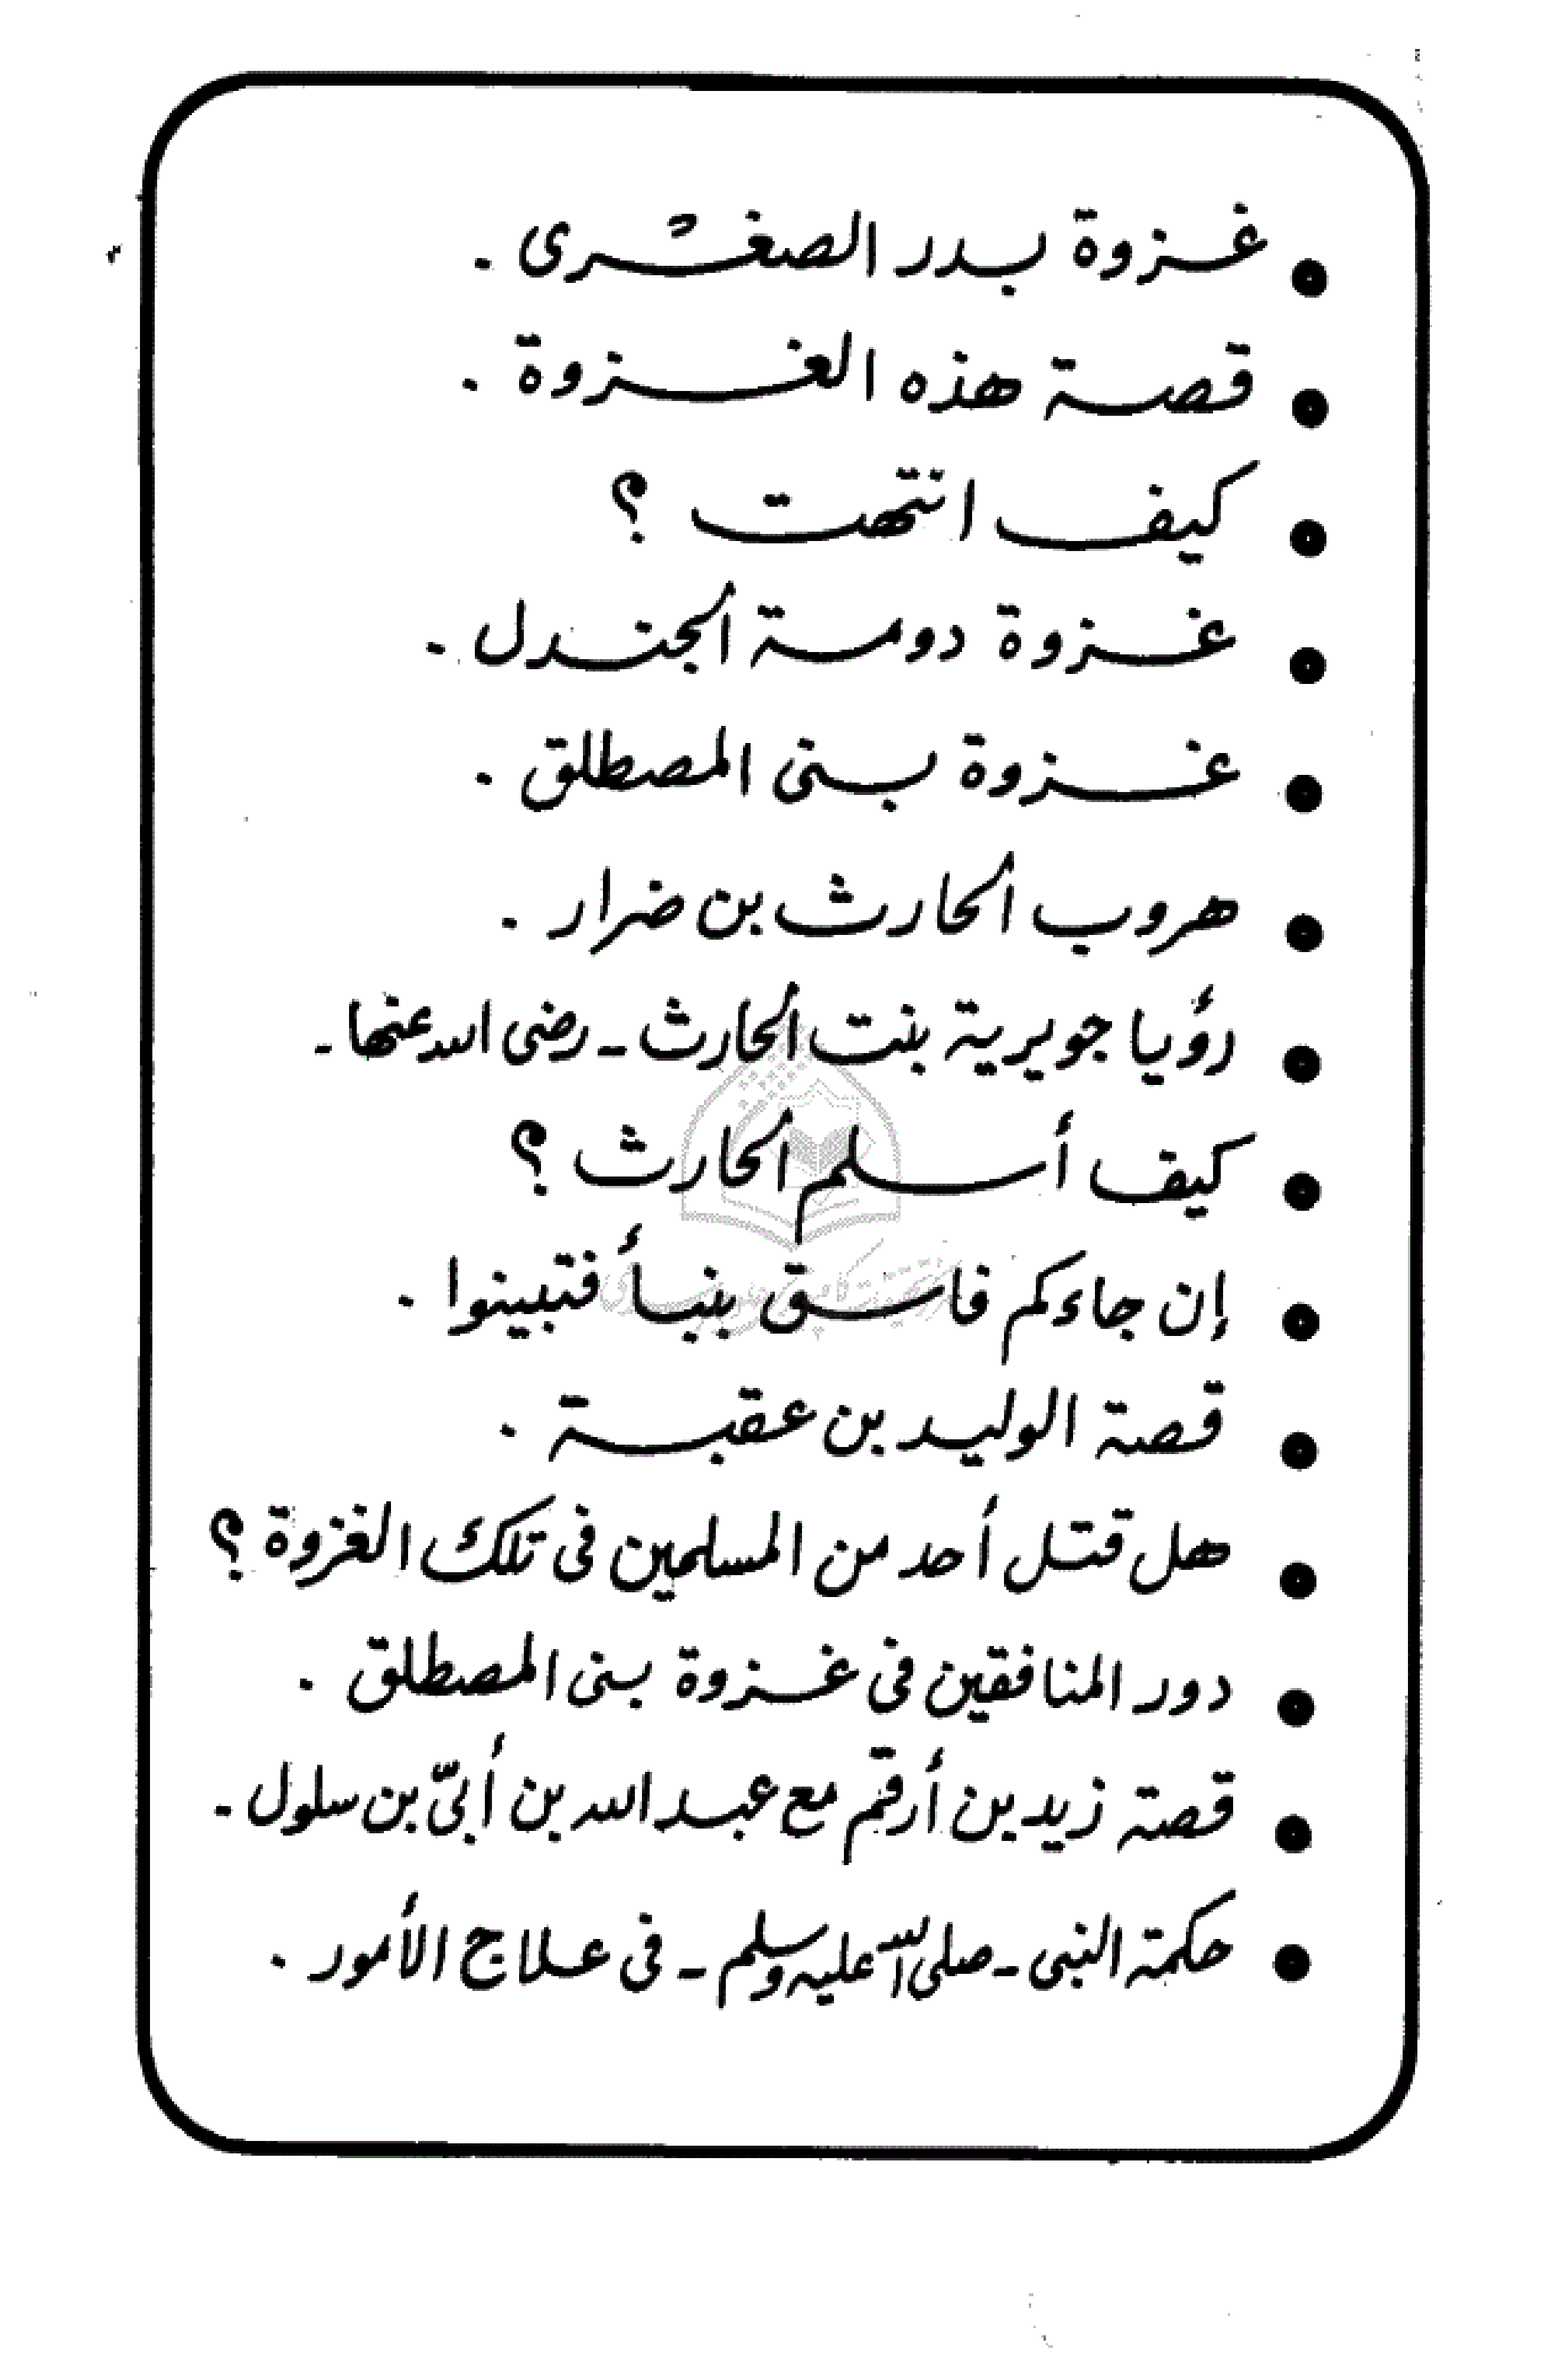 • غزوة بدر الصغرى .
• قصة هذه الغزوة .
• كيف انتهت ؟
• غزوة دومة الجندل .
• غزوة بنى المصطلق .
• هروب الحارث بن ضرار .
• رؤيا جويرية بنت الحارث - رضى الله عنها -
• كيف أسلم الحارث ؟
• إن جاءكم فاسق بنبأ فتبينوا .
• قصة الوليد بن عقبة .
• هل قتل أحد من المسلمين فى تلك الغزوة ؟
• دور المنافقين فى غزوة بنى المصطلق .
• قصة زيد بن أرقم مع عبد الله بن أبىّ بن سلول -
• حكمة النبى - صلى الله عليه وسلم - فى علاج الأمور .